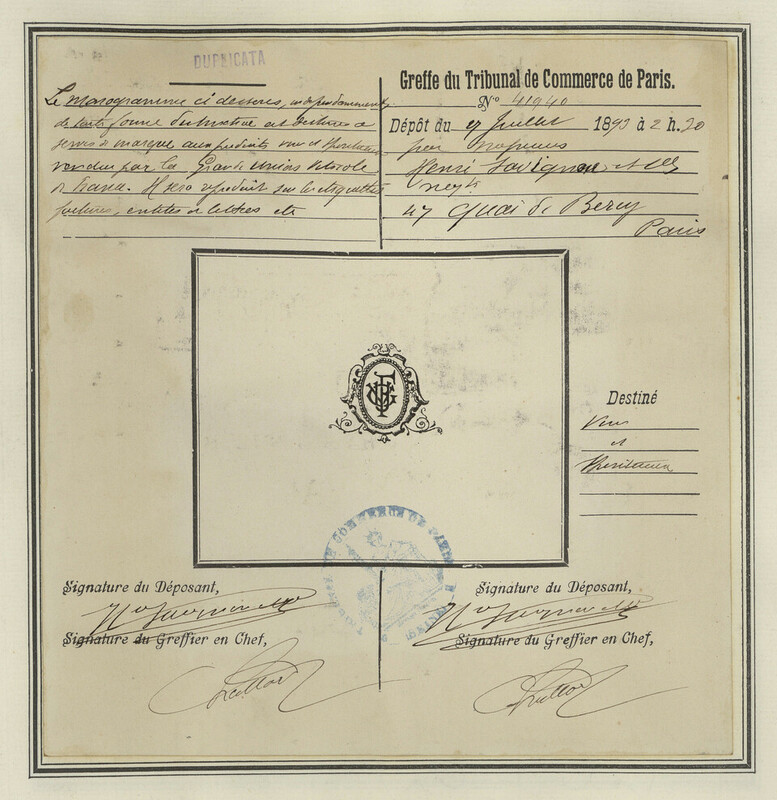 DUPLICATA
Le Monogramme ci dessous, indépendamment
de toute forme distinctive est destiné a
servir de marque aux produits vins et spiritueux
vendus par la Grande Union Vinicole
de France. Il sera reproduit sur les étiquettes
factures, entêtes de lettres etc
Greffe du Tribunal de Commerce de Paris.
N° 41940
Dépôt du 27 Juillet 1893 à 2 h. 20
par Messieurs
Henri Savignon et Cie
negts
47 Quai de Bercy
Paris
Destiné
Vins
et
Spiritueux
TRIBUNAL DE COMMERCE DE PARIS
Signature du Déposant,
Signature du Déposant,
Signature du Greffier en Chef,
Signature du Greffier en Chef,